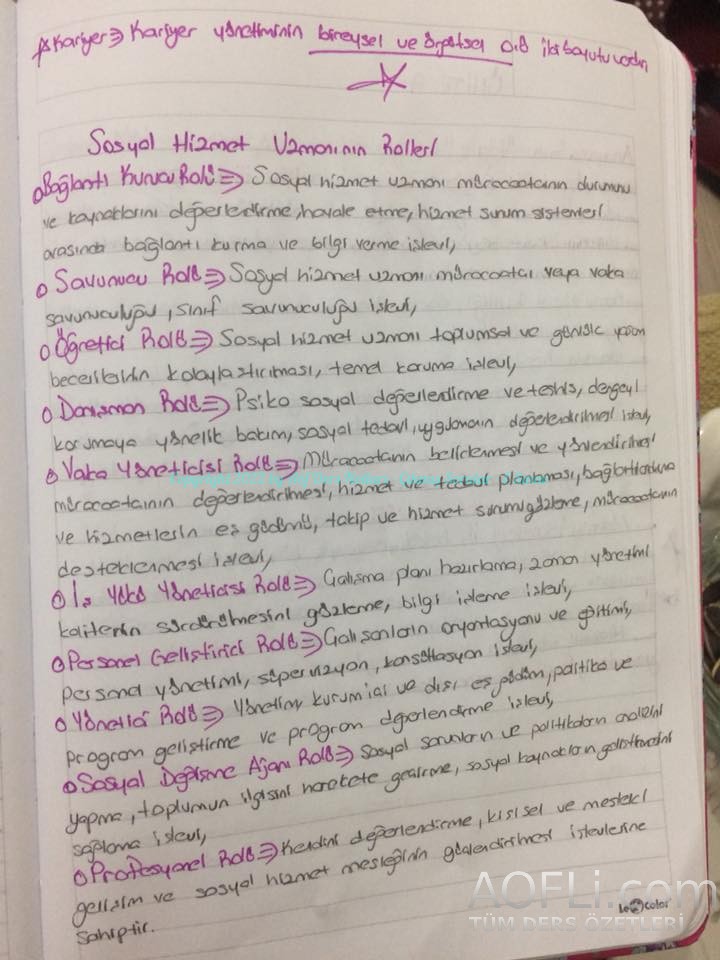 Kariyer⇒ Kariyer yönetiminin bireysel ve örgütsel old iki boyutu vardır
Sosyal Hizmet Uzmanının Rolleri
Bağlantı Kurucu Rolü⇒ Sosyal hizmet uzmanı müracaatçının durumunu
ve kaynaklarını değerlendirme, havale etme, hizmet sunum sistemleri
arasında bağlantı kurma ve bilgi verme işlevi,
Savunucu Rolü⇒ Sosyal hizmet uzmanı müracaatçı veya vaka
savunuculuğu, sınıf savunuculuğu işlevi,
Öğretici Rolü⇒ Sosyal hizmet uzmanı toplumsal ve günlük yaşam
becerilerinin kolaylaştırılması, temel koruma işlevi,
Danışman Rolü⇒ Psiko sosyal değerlendirme ve teşhis, dengeyi
korumaya yönelik bakım, sosyal tedavi, uygulamanın değerlendirilmesi işlevi,
Vaka Yöneticisi Rolü⇒ Müracaatçının belirlenmesi ve yönlendirilmesi
müracaatçının değerlendirilmesi, hizmet ve tedavi planlaması, bağlantılandırma
ve hizmetlerin eş güdümü, takip ve hizmet sunumu gözleme, müracaatçının
desteklenmesi işlevi,
İş Yükü Yöneticisi Rolü⇒ Çalışma planı hazırlama, zaman yönetimi
kalitenin sürdürülmesini gözleme, bilgi işleme işlevi,
Personel Geliştirici Rolü⇒ Çalışanların oryantasyonu ve eğitimi,
personel yönetimi, süpervizyon, konsültasyon işlevi,
Yönetici Rolü⇒ Yönetim, kurum içi ve dışı eş güdüm, politika ve
program geliştirme ve program değerlendirme işlevi,
Sosyal Değişme Ajanı Rolü⇒ Sosyal sorunların ve politikaların analizini
yapma, toplumun ilgisini harekete geçirme, sosyal kaynakların geliştirilmesini
sağlama işlevi,
Profesyonel Rolü⇒ Kendini değerlendirme, kişisel ve mesleki
gelişim ve sosyal hizmet mesleğinin güçlendirilmesi işlevlerine
sahiptir.
AÖFLi.com
TÜM DERS ÖZETLERİ
le color